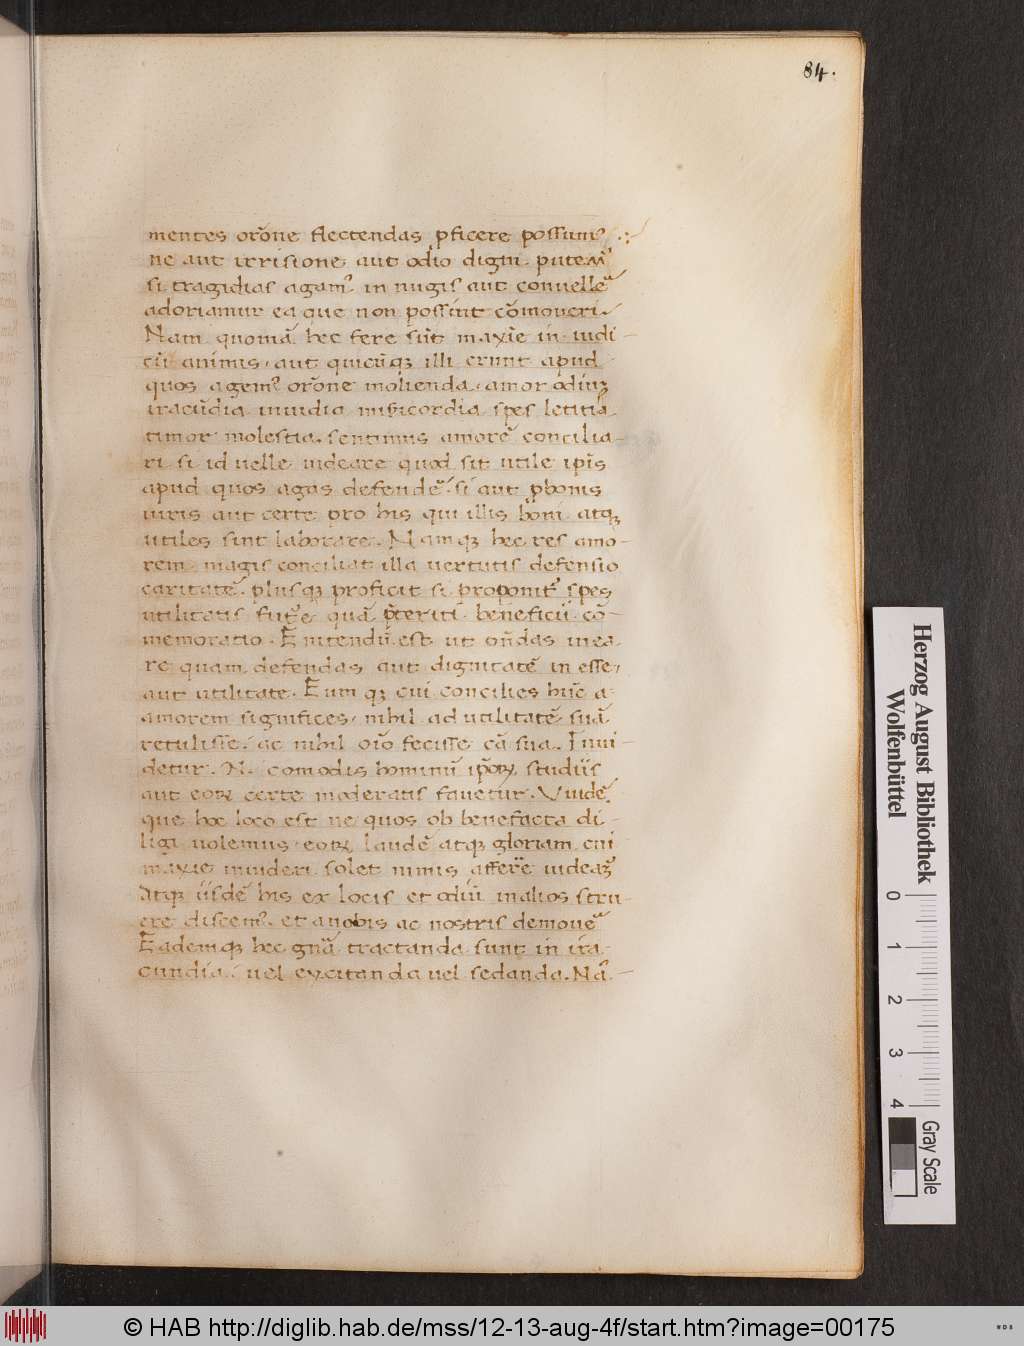 84.
mentes orōne flectendas pficere possumꝰ
ne aut irrisione aut odio digni putemꝰ
si tragidias agamꝰ in nugis aut conuelle᷑
adoriamur ea que non possīnt cōmoueri.
Nam quoniā hec fere sūt maxīe in iudi-
cū animis aut quicūqꝫ illi erunt apud
quos agemꝰ orōne molienda. amor odiuꝫ
iracūdia inuidia misicordia spes letitia
timor molestia. sentimus amorē concilia-
ri si id uelle uideare quod sit utile ip̄is
apud quos agas defende᷑. si aut p bonis
uiris aut certe pro his qui illis boni atqꝫ
utiles sint laborare. Namqꝫ hec res amo-
rem magis conciliat illa uertutis defensio
caritatē. plusqꝫ proficit si proponit᷑ spes
utilitatis futᷣe quā p̄teriti beneficii cō-
memoratio. Enitendū est ut on̄das in ea
re quam defendas aut dignitatē in esse,
aut utilitate. Eum qꝫ cui concilies hūc a-
amorem significes, nihil ad utilitatē suā
retulisse. ac nihil oīo fecisse cā sua. Inui-
detur. N. comodis hominū ip̄oꝝ studiis
aut eoꝝ certe moderatis fauetur. Vidē
que hoc loco est ne quos ob benefacta di-
ligi uolemus eoꝝ laudē atqꝫ gloriam cui
maxīe inuideri solet nimis afferre uideaꝰ
Atqꝫ iisdē his ex locis et odiū in alios stru-
ere discemꝰ. et a nobis ac nostris demoue᷑
Eademqꝫ hec gn̄a tractanda sunt in ira-
cundia. uel excitanda uel sedanda. Nā. -
Herzog August Bibliothek
Wolfenbüttel
0 1 2 3 4
Gray Scale
© HAB http://diglib.hab.de/mss/12-13-aug-4f/start.htm?image=00175
WDB